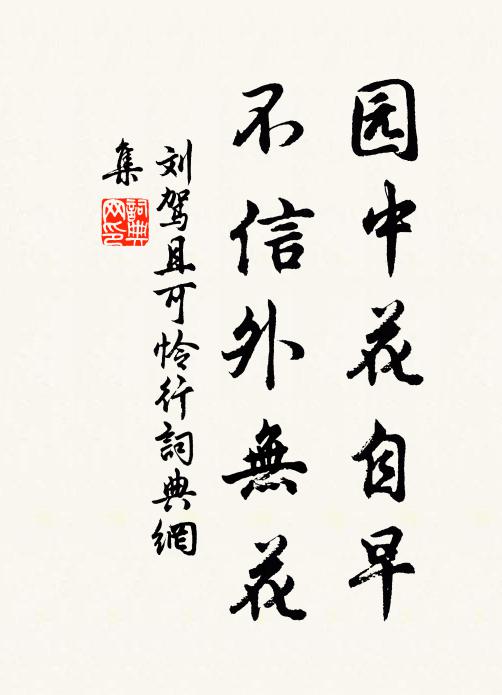 园中花自早
不信外無花
刘驾且可怜行詞典網
集
詞典网印